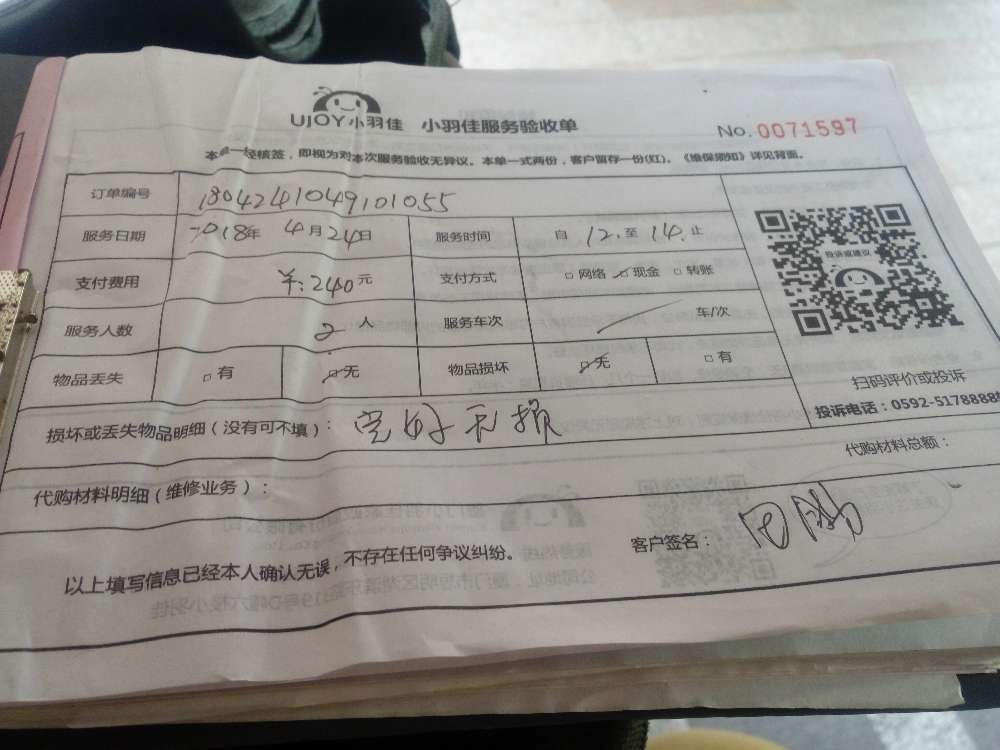 UJOY小羽佳 小羽佳服务验收单 No.0071597
本单一经核签，即视为对本次服务验收无异议。本单一式两份，客户留存一份(红)。《维保须知》详见背面。
订单编号 1804241049101055
服务日期 2018年 4月24日 服务时间 自 12. 至 14. 止
支付费用 ¥:240元 支付方式 □网络 ☑现金 □转账
服务人数 2人 服务车次 / 车/次
物品丢失 □有 ☑无 物品损坏 ☑无 □有
投诉或建议
扫码评价或投诉
投诉电话：0592-5178888
损坏或丢失物品明细（没有可不填）：完好无损
代购材料明细（维修业务）： 代购材料总额：
以上填写信息已经本人确认无误，不存在任何争议纠纷。 客户签名：